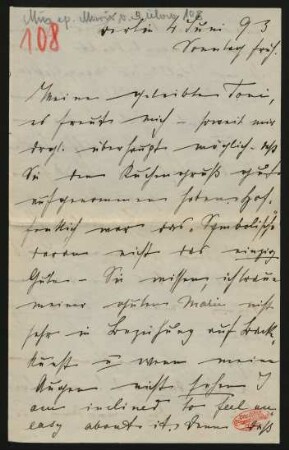 108
Berlin 4 Juni 93
Sonntag früh.
Meine geliebte Toni,
es freute mich – soweit mir
drgl. überhaupt möglich – daß
Sie den Kuchengruß gut
aufgenommen haben. Hof-
fentlich war das Symbolische
daran nicht das einzig
Gute – Sie wissen, ich traue
meiner guten Marie nicht
sehr in Beziehung auf Back-
kunst u wenn meine
Augen nicht sehen I
am inclined to feel un-
easy about it. Denn daß